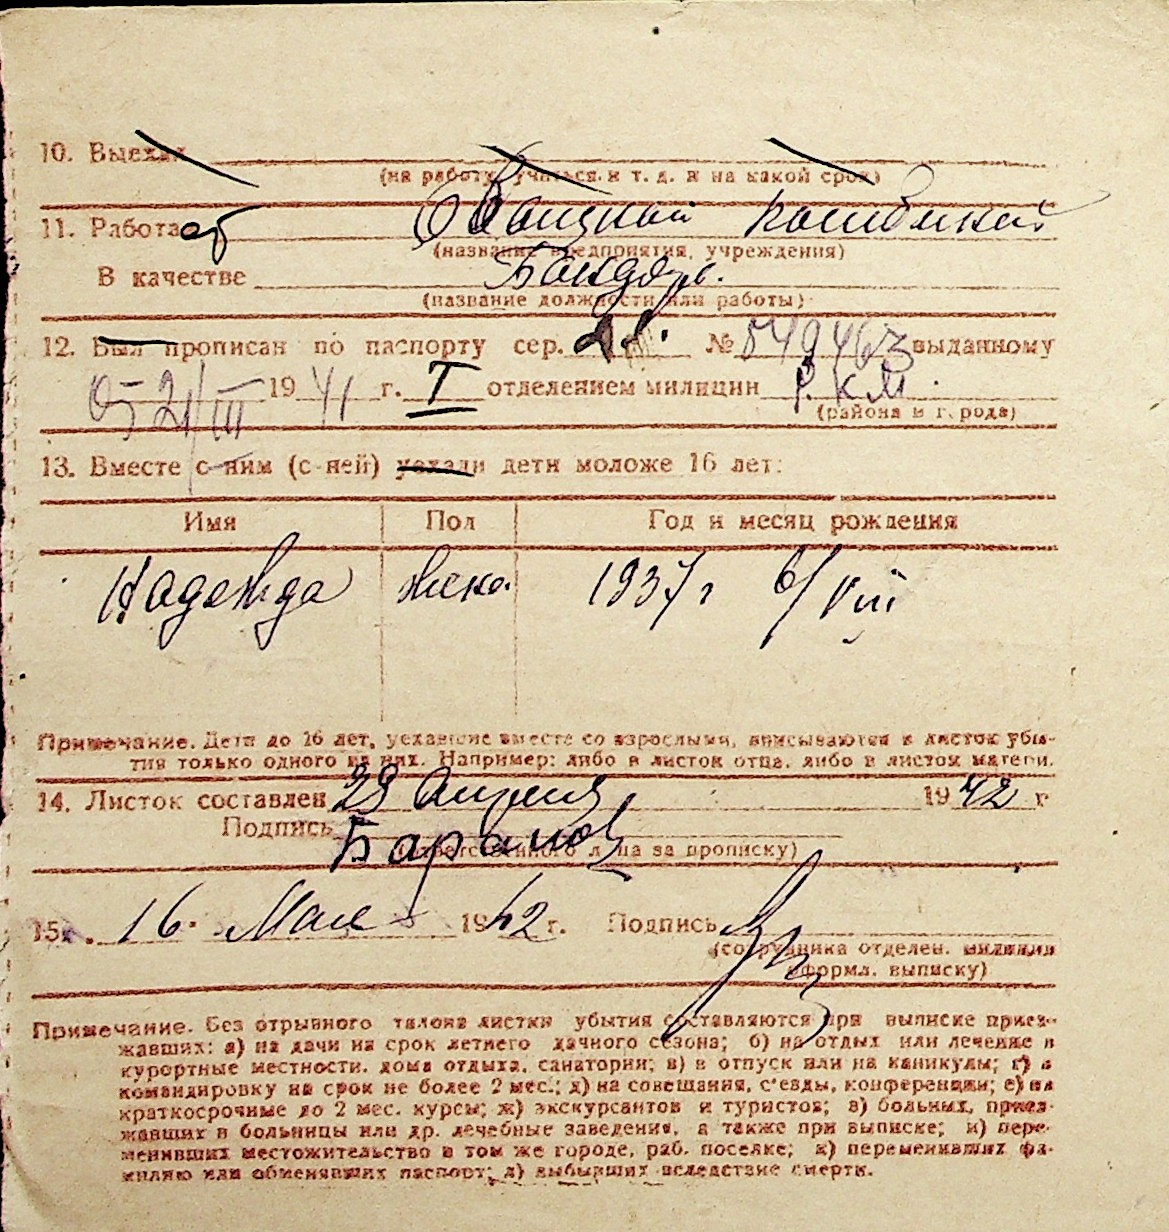 10. Выехал
(на работу, учиться и т. д. и на какой срок)
11. Работает
(название предприятия, учреждения)
В качестве Бондарь.
(название должности или работы)
12. Был прописан по паспорту сер. № 549463 выданному
21/III 19 41 г. I отделением милиции Р.К.М.
(района и города)
13. Вместе с ним (с ней) уехали дети моложе 16 лет:
Имя Пол Год и месяц рождения
Надежда женс. 1937 г 6/VIII
Примечание. Дети до 16 лет, уехавшие вместе со взрослыми, вписываются в листок убы-
тия только одного из них. Например: либо в листок отца, либо в листок матери.
14. Листок составлен 28 Апреля 1942 г
Подпись Баранов
(ответственного лица за прописку)
15. 16. Мая 1942 г. Подпись
(сотрудника отделен. милиции
оформл. выписку)
Примечание. Без отрывного талона листки убытия составляются при выписке приез-
жавших: а) на дачи на срок летнего дачного сезона; б) на отдых или лечение в
курортные местности, дома отдыха, санатории; в) в отпуск или на каникулы; г) в
командировку на срок не более 2 мес.; д) на совещания, с'езды, конференции; е) на
краткосрочные до 2 мес. курсы; ж) экскурсантов и туристов; з) больных, приез-
жавших в больницы или др. лечебные заведения, а также при выписке; и) пере-
менивших местожительство в том же городе, раб. поселке; к) переменивших фа-
милию или обменявших паспорт; л) выбывших вследствие смерти.